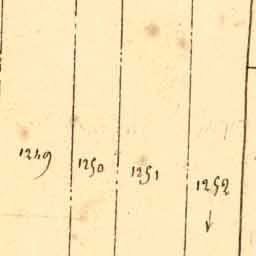 1249
1250
1251
1252